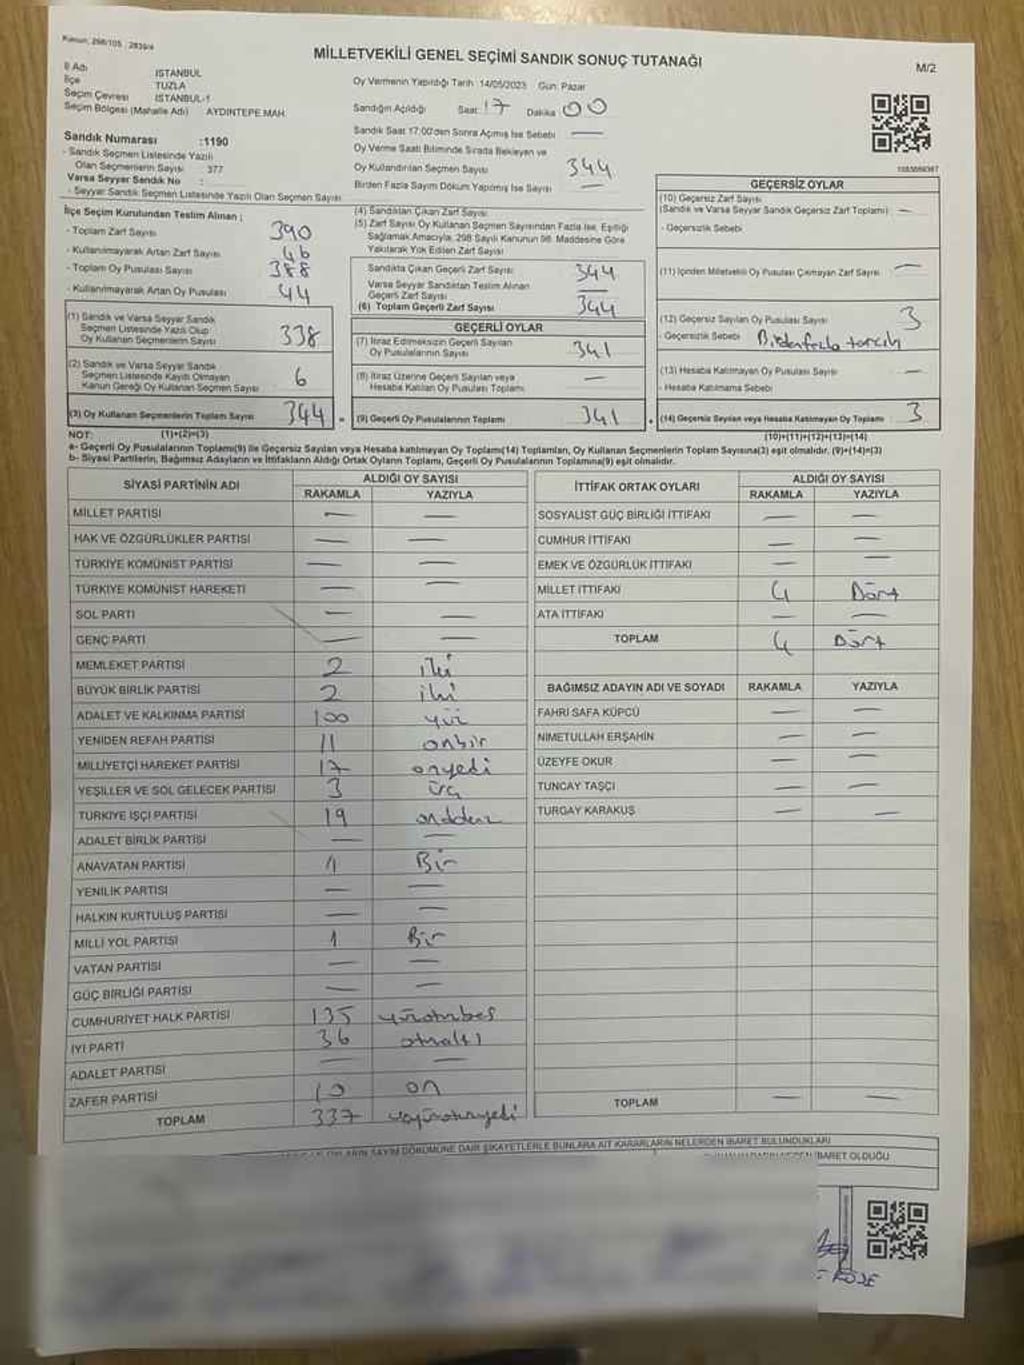 Kanun: 298/105 , 2839/4
MİLLETVEKİLİ GENEL SEÇİMİ SANDIK SONUÇ TUTANAĞI
M/2
İl Adı İSTANBUL
İlçe TUZLA
Seçim Çevresi İSTANBUL-1
Seçim Bölgesi (Mahalle Adı) AYDINTEPE MAH.
Oy Vermenin Yapıldığı Tarih : 14/05/2023 Gün: Pazar
Sandığın Açıldığı Saat: 17 Dakika 00
Sandık Saat 17:00'den Sonra Açılmış İse Sebebi —
Oy Verme Saati Bitiminde Sırada Bekleyen ve
Oy Kullandırılan Seçmen Sayısı 344
Birden Fazla Sayım Döküm Yapılmış İse Sayısı —
Sandık Numarası :1190
- Sandık Seçmen Listesinde Yazılı
Olan Seçmenlerin Sayısı 377
Varsa Seyyar Sandık No :
- Seyyar Sandık Seçmen Listesinde Yazılı Olan Seçmen Sayısı
İlçe Seçim Kurulundan Teslim Alınan ;
- Toplam Zarf Sayısı 390
- Kullanılmayarak Artan Zarf Sayısı 46
- Toplam Oy Pusulası Sayısı 388
- Kullanılmayarak Artan Oy Pusulası 44
(1) Sandık ve Varsa Seyyar Sandık
Seçmen Listesinde Yazılı Olup
Oy Kullanan Seçmenlerin Sayısı 338
(2) Sandık ve Varsa Seyyar Sandık
Seçmen Listesinde Kayıtlı Olmayan
Kanun Gereği Oy Kullanan Seçmen Sayısı 6
(3) Oy Kullanan Seçmenlerin Toplam Sayısı 344
(1)+(2)=(3)
(4) Sandıktan Çıkan Zarf Sayısı
(5) Zarf Sayısı Oy Kullanan Seçmen Sayısından Fazla İse, Eşitliği
Sağlamak Amacıyla, 298 Sayılı Kanunun 98. Maddesine Göre
Yakılarak Yok Edilen Zarf Sayısı
Sandıkta Çıkan Geçerli Zarf Sayısı 344
Varsa Seyyar Sandıktan Teslim Alınan
Geçerli Zarf Sayısı —
(6) Toplam Geçerli Zarf Sayısı 344
GEÇERLİ OYLAR
(7) İtiraz Edilmeksizin Geçerli Sayılan
Oy Pusulalarının Sayısı 341
(8) İtiraz Üzerine Geçerli Sayılan veya
Hesaba Katılan Oy Pusulaları Toplamı —
(9) Geçerli Oy Pusulalarının Toplamı 341
GEÇERSİZ OYLAR
(10) Geçersiz Zarf Sayısı
(Sandık ve Varsa Seyyar Sandık Geçersiz Zarf Toplamı) —
- Geçersizlik Sebebi
(11) İçinden Milletvekili Oy Pusulası Çıkmayan Zarf Sayısı —
(12) Geçersiz Sayılan Oy Pusulası Sayısı 3
- Geçersizlik Sebebi Birdenfazla tercih
(13) Hesaba Katılmayan Oy Pusulası Sayısı —
- Hesaba Katılmama Sebebi
(14) Geçersiz Sayılan veya Hesaba Katılmayan Oy Toplamı 3
(10)+(11)+(12)+(13)=(14)
NOT:
a- Geçerli Oy Pusulalarının Toplamı(9) ile Geçersiz Sayılan veya Hesaba katılmayan Oy Toplamı(14) Toplamları, Oy Kullanan Seçmenlerin Toplam Sayısına(3) eşit olmalıdır. (9)+(14)=(3)
b- Siyasi Partilerin, Bağımsız Adayların ve İttifakların Aldığı Ortak Oyların Toplamı, Geçerli Oy Pusulalarının Toplamına(9) eşit olmalıdır.
SİYASİ PARTİNİN ADI ALDIĞI OY SAYISI
RAKAMLA YAZIYLA
MİLLET PARTİSİ — —
HAK VE ÖZGÜRLÜKLER PARTİSİ — —
TÜRKİYE KOMÜNİST PARTİSİ — —
TÜRKİYE KOMÜNİST HAREKETİ — —
SOL PARTİ — —
GENÇ PARTİ — —
MEMLEKET PARTİSİ 2 iki
BÜYÜK BİRLİK PARTİSİ 2 iki
ADALET VE KALKINMA PARTİSİ 100 yüz
YENİDEN REFAH PARTİSİ 11 onbir
MİLLİYETÇİ HAREKET PARTİSİ 17 onyedi
YEŞİLLER VE SOL GELECEK PARTİSİ 3 üç
TÜRKİYE İŞÇİ PARTİSİ 19
ADALET BİRLİK PARTİSİ — —
ANAVATAN PARTİSİ 1 Bir
YENİLİK PARTİSİ — —
HALKIN KURTULUŞ PARTİSİ — —
MİLLİ YOL PARTİSİ 1 Bir
VATAN PARTİSİ — —
GÜÇ BİRLİĞİ PARTİSİ — —
CUMHURİYET HALK PARTİSİ 135 yüzotuzbeş
İYİ PARTİ 36 otuzaltı
ADALET PARTİSİ — —
ZAFER PARTİSİ 10 on
TOPLAM 337 üçyüzotuzyedi
İTTİFAK ORTAK OYLARI ALDIĞI OY SAYISI
RAKAMLA YAZIYLA
SOSYALİST GÜÇ BİRLİĞİ İTTİFAKI — —
CUMHUR İTTİFAKI — —
EMEK VE ÖZGÜRLÜK İTTİFAKI — —
MİLLET İTTİFAKI 4 Dört
ATA İTTİFAKI — —
TOPLAM 4 Dört
BAĞIMSIZ ADAYIN ADI VE SOYADI RAKAMLA YAZIYLA
FAHRİ SAFA KÜPCÜ — —
NİMETULLAH ERŞAHİN — —
ÜZEYFE OKUR — —
TUNCAY TAŞÇI — —
TURGAY KARAKUŞ — —
TOPLAM — —
OYLARIN SAYIM DÖKÜMÜNE DAİR ŞİKAYETLERLE BUNLARA AİT KARARLARIN NELERDEN İBARET BULUNDUKLARI
İBARET OLDUĞU
KÖSE